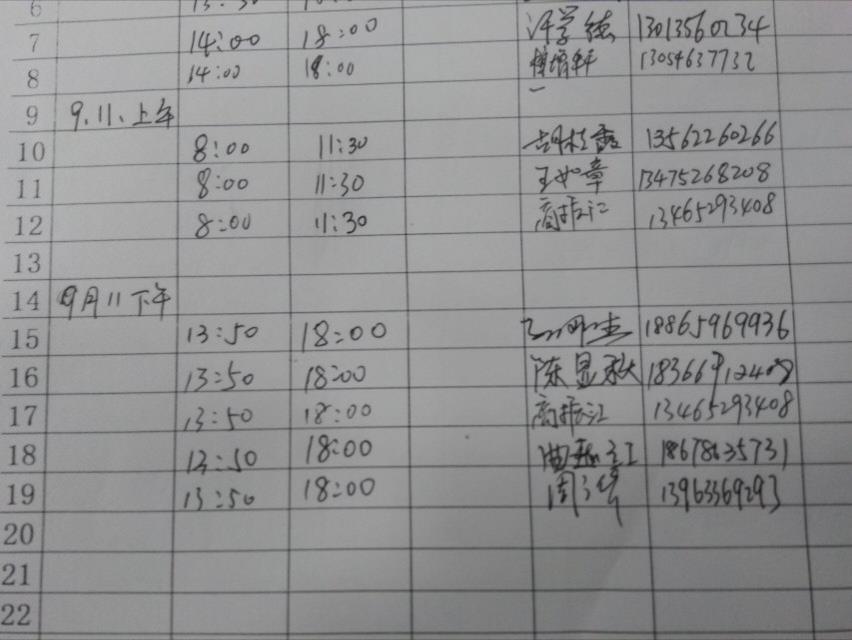 6
7 14:00 18:00 许学德 13013560234
8 14:00 18:00 13054637732
9 9.11.上午
10 8:00 11:30 胡桂霞 13562260266
11 8:00 11:30 王如章 13475268208
12 8:00 11:30 高振江 13465293408
13
14 9月11下午
15 13:50 18:00 18865969936
16 13:50 18:00 陈显秋
17 13:50 18:00 高振江 13465293408
18 13:50 18:00 18678635731
19 13:50 18:00 13963369293
20
21
22